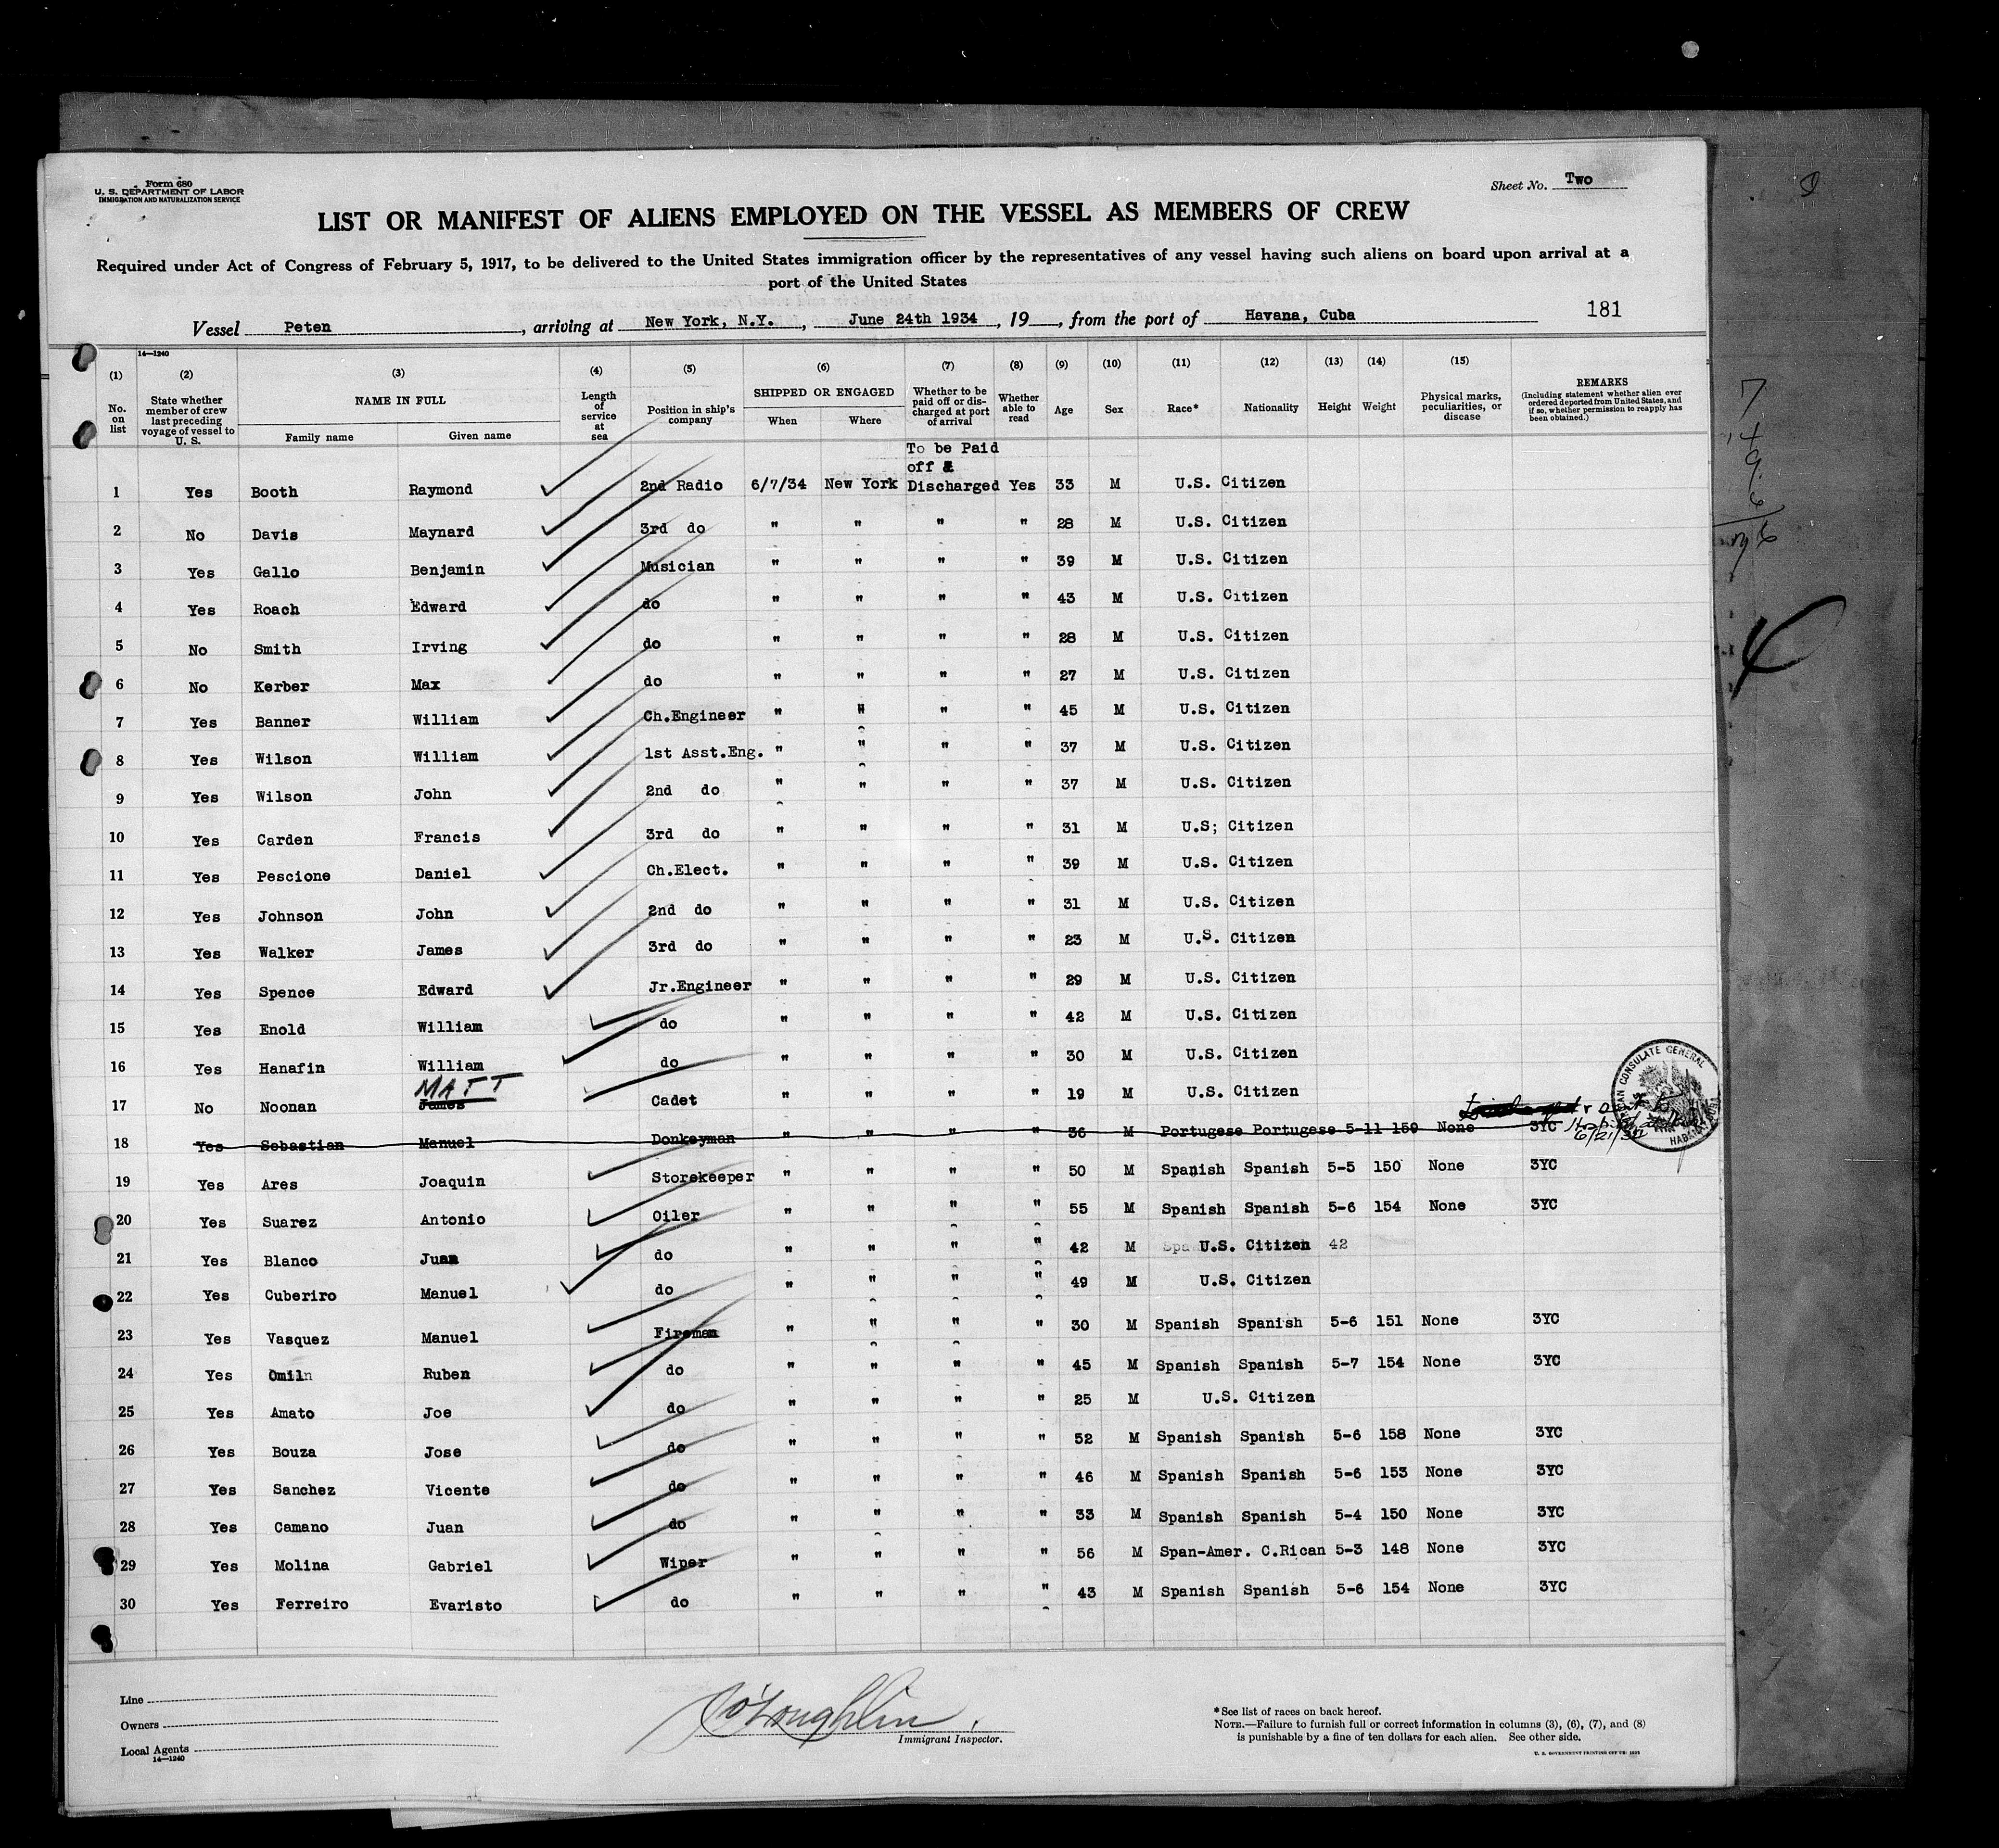 Form 680
U. S. DEPARTMENT OF LABOR
IMMIGRATION AND NATURALIZATION SERVICE
Sheet No. Two
LIST OR MANIFEST OF ALIENS EMPLOYED ON THE VESSEL AS MEMBERS OF CREW
Required under Act of Congress of February 5, 1917, to be delivered to the United States immigration officer by the representatives of any vessel having such aliens on board upon arrival at a
port of the United States
181
Vessel Peten, arriving at New York, N.Y., June 24th 1934, 19, from the port of Havana, Cuba
14—1240
(1) (2) (3) (4) (5) (6) (7) (8) (9) (10) (11) (12) (13) (14) (15)
No. on list
State whether member of crew last preceding voyage of vessel to U. S.
NAME IN FULL
Family name Given name
Length of service at sea
Position in ship's company
SHIPPED OR ENGAGED
When Where
Whether to be paid off or discharged at port of arrival
Whether able to read
Age Sex Race* Nationality Height Weight
Physical marks, peculiarities, or disease
REMARKS
(Including statement whether alien ever ordered deported from United States, and if so, whether permission to reapply has been obtained.)
To be Paid
off &
1 Yes Booth Raymond 2nd Radio 6/7/34 New York Discharged Yes 33 M U.S. Citizen
2 No Davis Maynard 3rd do " " " " 28 M U.S. Citizen
3 Yes Gallo Benjamin Musician " " " " 39 M U.S. Citizen
4 Yes Roach Edward do " " " " 43 M U.S. Citizen
5 No Smith Irving do " " " " 28 M U.S. Citizen
6 No Kerber Max do " " " " 27 M U.S. Citizen
7 Yes Banner William Ch.Engineer " " " " 45 M U.S. Citizen
8 Yes Wilson William 1st Asst.Eng. " " " " 37 M U.S. Citizen
9 Yes Wilson John 2nd do " " " " 37 M U.S. Citizen
10 Yes Carden Francis 3rd do " " " " 31 M U.S; Citizen
11 Yes Pescione Daniel Ch.Elect. " " " " 39 M U.S. Citizen
12 Yes Johnson John 2nd do " " " " 31 M U.S. Citizen
13 Yes Walker James 3rd do " " " " 23 M U.S. Citizen
14 Yes Spence Edward Jr.Engineer " " " " 29 M U.S. Citizen
15 Yes Enold William do " " " " 42 M U.S. Citizen
16 Yes Hanafin William do " " " " 30 M U.S. Citizen
MATT
17 No Noonan James Cadet " " " " 19 M U.S. Citizen
18 Yes Sebastian Manuel Donkeyman " " " " 36 M Portugese Portugese 5-11 159 None 3YC
6/21/34
19 Yes Ares Joaquin Storekeeper " " " " 50 M Spanish Spanish 5-5 150 None 3YC
20 Yes Suarez Antonio Oiler " " " " 55 M Spanish Spanish 5-6 154 None 3YC
21 Yes Blanco Juan do " " " " 42 M U.S. Citizen 42
22 Yes Cuberiro Manuel do " " " " 49 M U.S. Citizen
23 Yes Vasquez Manuel Fireman " " " " 30 M Spanish Spanish 5-6 151 None 3YC
24 Yes Omiln Ruben do " " " " 45 M Spanish Spanish 5-7 154 None 3YC
25 Yes Amato Joe do " " " " 25 M U.S. Citizen
26 Yes Bouza Jose do " " " " 52 M Spanish Spanish 5-6 158 None 3YC
27 Yes Sanchez Vicente do " " " " 46 M Spanish Spanish 5-6 153 None 3YC
28 Yes Camano Juan do " " " " 33 M Spanish Spanish 5-4 150 None 3YC
29 Yes Molina Gabriel Wiper " " " " 56 M Span-Amer. C.Rican 5-3 148 None 3YC
30 Yes Ferreiro Evaristo do " " " " 43 M Spanish Spanish 5-6 154 None 3YC
Line
Owners
Local Agents
14—1240
O'Loughlin
Immigrant Inspector.
*See list of races on back hereof.
NOTE.—Failure to furnish full or correct information in columns (3), (6), (7), and (8)
is punishable by a fine of ten dollars for each alien. See other side.
U. S. GOVERNMENT PRINTING OFFICE